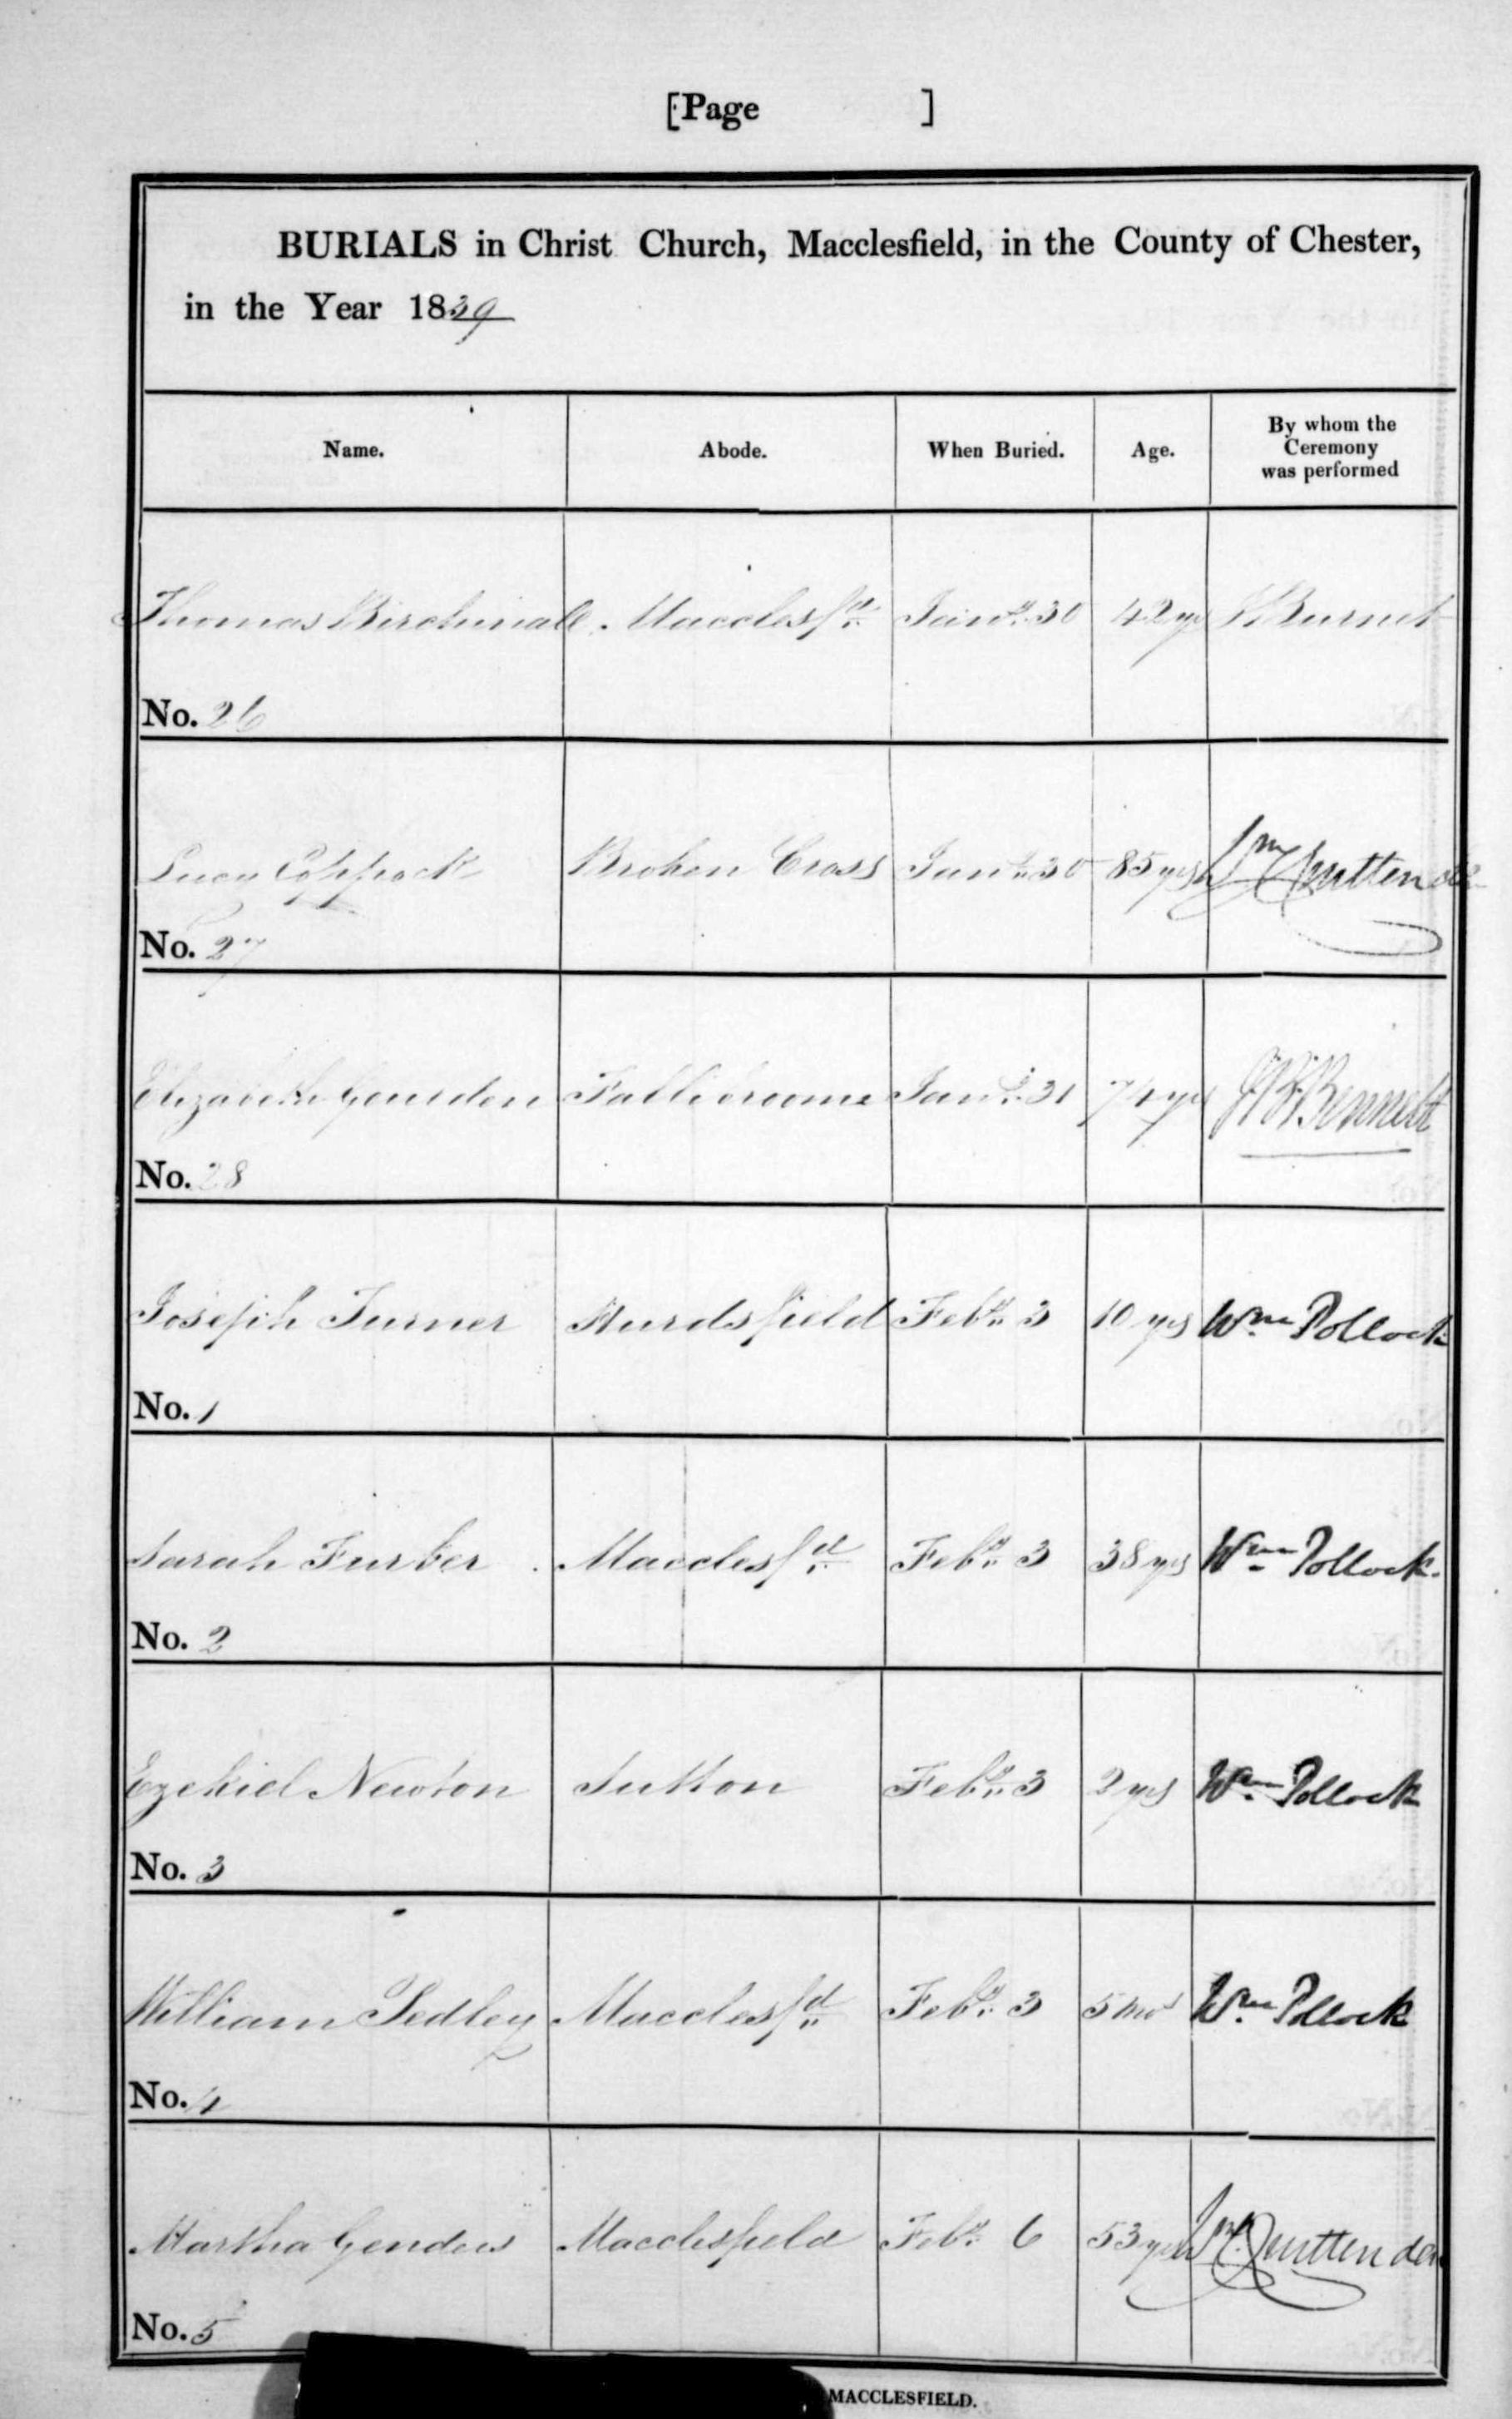 [Page ]
BURIALS in Christ Church, Macclesfield, in the County of Chester,
in the Year 1839
Name. Abode. When Buried. Age. By whom the Ceremony was performed
Thomas Birchinall Macclesfd Jany 30 42 yrs Burnet
No. 26
Lucy Coppock Broken Cross Jany 30 85 yrs
No. 27
Elizabeth Fallibroome Jany 31 74 yrs Bennett
No. 28
Joseph Turner Hurdsfield Feby 3 10 yrs Wm Pollock
No. 1
Sarah Furber Macclesfd Feby 3 38 yrs Wm Pollock.
No. 2
Ezekiel Newton Sutton Feby 3 2 yrs Wm Pollock
No. 3
William Sedley Macclesfd Feby 3 5 mos Wm Pollock
No. 4
Martha Genders Macclesfield Feby 6 53 years
No. 5
MACCLESFIELD.